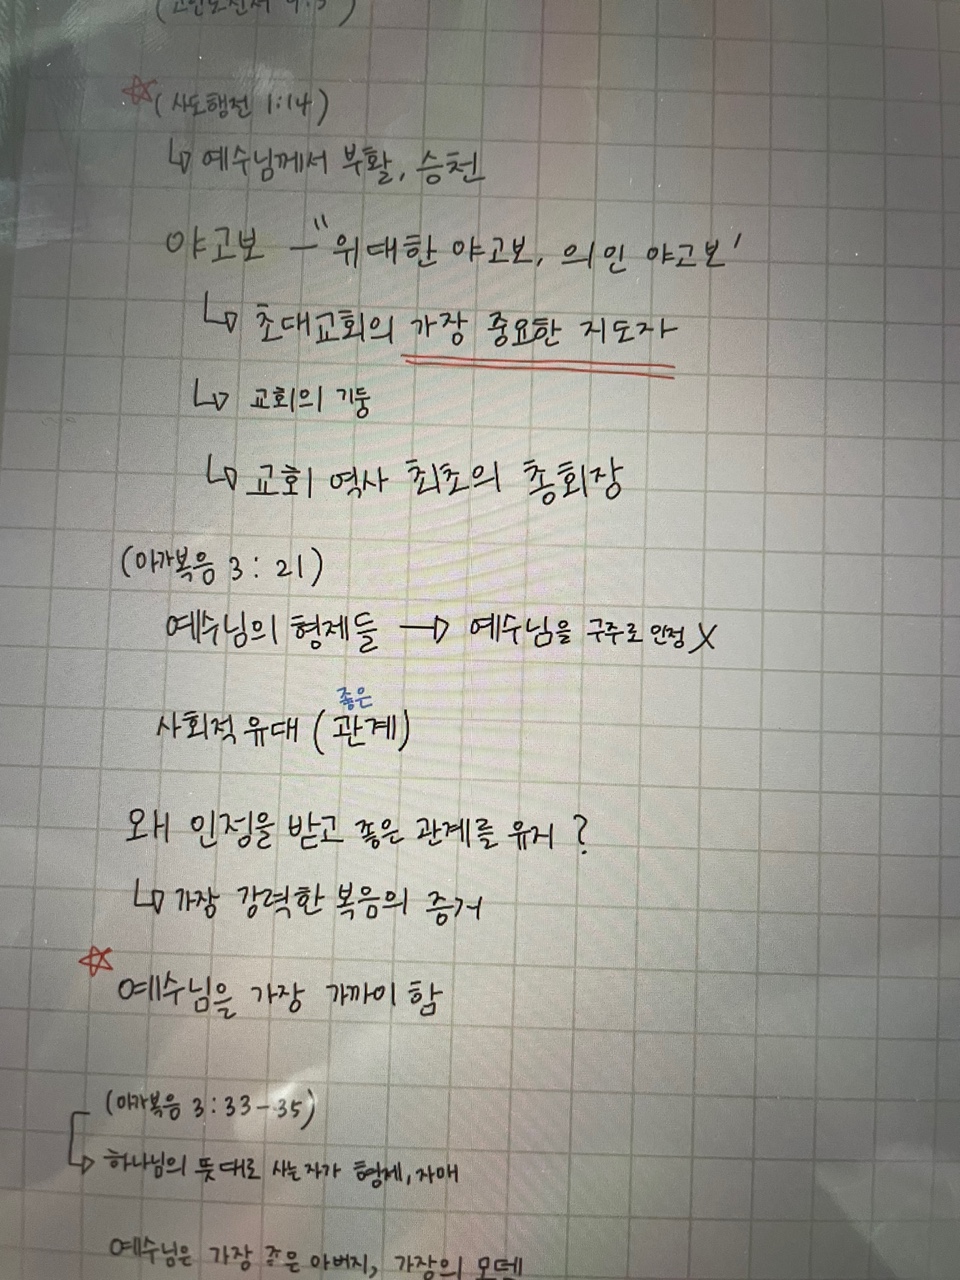 (고린도전서 9:5)
(사도행전 1:14)
↳ 예수님께서 부활, 승천
야고보 - "위대한 야고보, 의인 야고보'
↳ 초대교회의 가장 중요한 지도자
↳ 교회의 기둥
↳ 교회 역사 최초의 총회장
(마가복음 3:21)
예수님의 형제들 → 예수님을 구주로 인정 X
좋은
사회적 유대 (관계)
왜 인정을 받고 좋은 관계를 유지?
↳ 가장 강력한 복음의 증거
예수님을 가장 가까이 함
(마가복음 3:33-35)
→ 하나님의 뜻대로 사는자가 형제, 자매
예수님은 가장 좋은 아버지, 가장의 모델